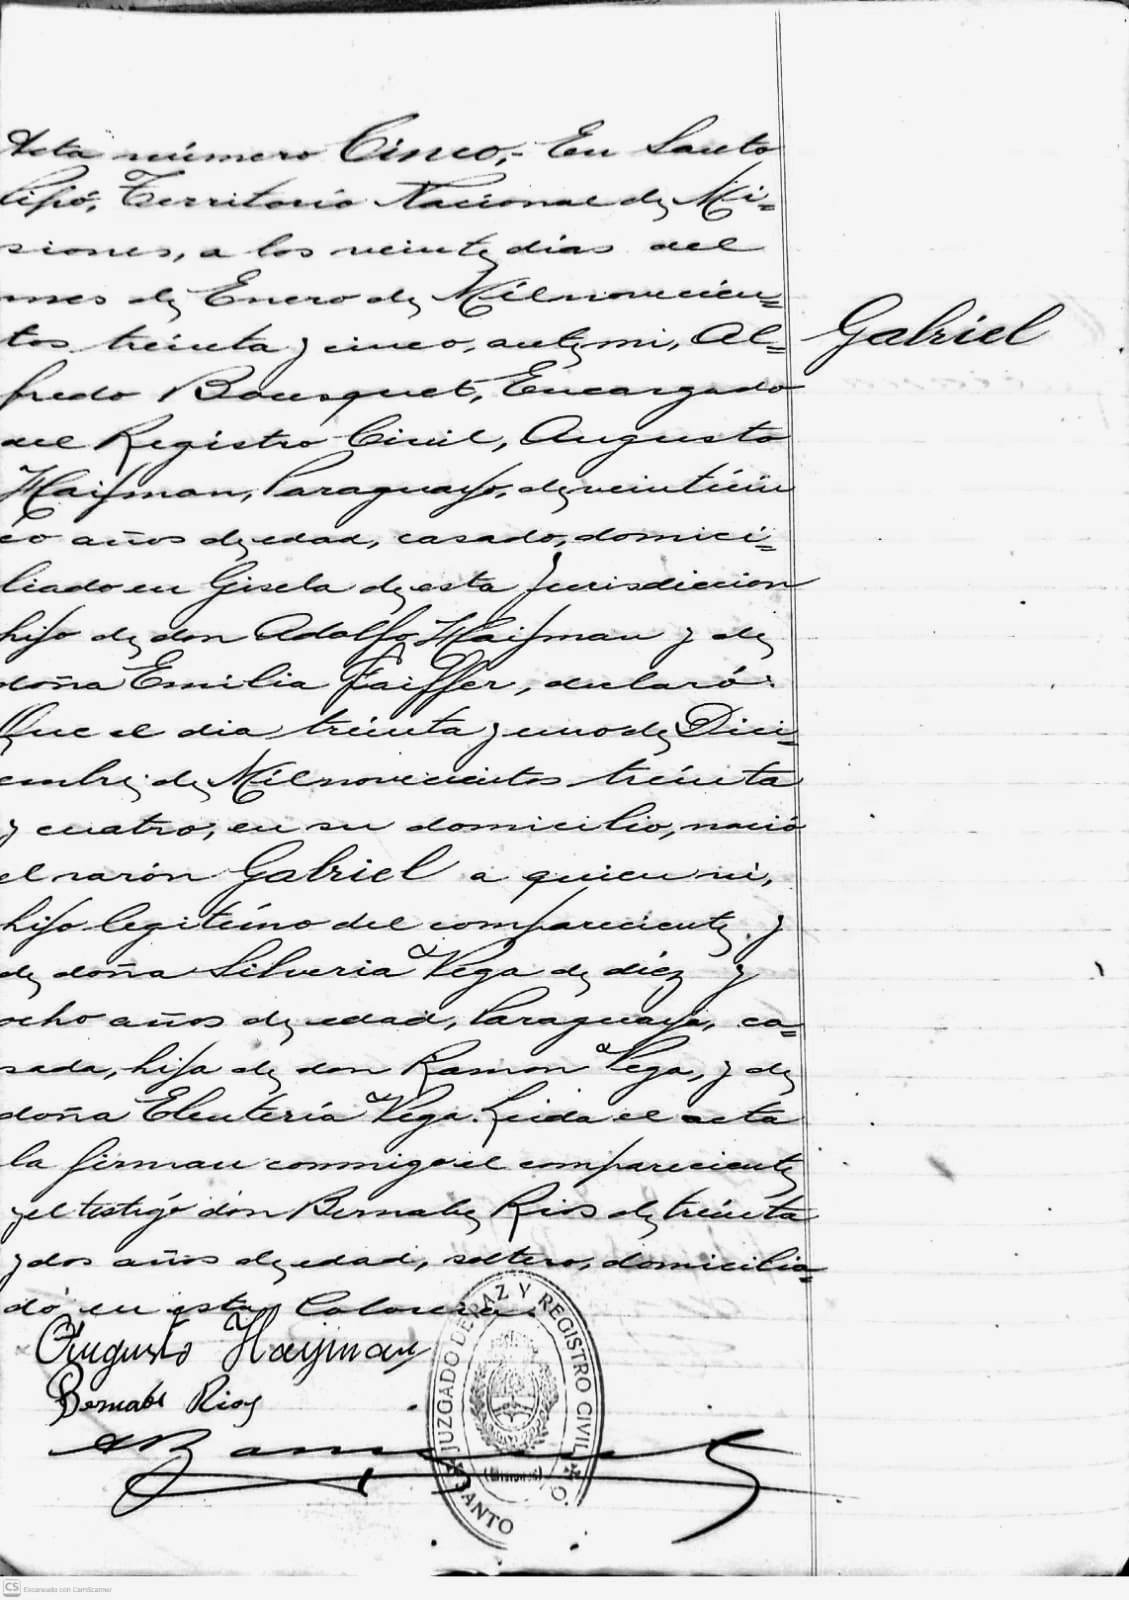 Acta número Cinco,- En Santo
Pipó, Territorio Nacional de Mi=
siones, a los veinte dias del
mes de Enero de Mil novecien=
tos treinta y cinco, ante mi, Al=
fredo Bousquet, Encargado
del Registro Civil, Augusto
Haifman, Paraguayo, de veinticin
co años de edad, casado, domici=
liado en Gisela de esta Jurisdiccion
hijo de don Adolfo Haifman y de
doña Emilia Faiffer, declaró:
Que el dia treinta y uno de Dici=
embre de Mil novecientos treinta
y cuatro, en su domicilio, nació
el varón Gabriel a quien vi,
hijo legitimo del compareciente y
de doña Silveria Vega de diez y
ocho años de edad, Paraguaya, ca=
sada, hija de don Ramon Vega, y de
doña Eleuteria Vega. Leida el acta
la firman conmigo el compareciente
y el testigo don Bernabe Rios de treinta
y dos años de edad, soltero, domicilia=
do en esta Colonia.
Gabriel
Augusto Hayman
Bernabe Rios
JUZGADO DE PAZ Y REGISTRO CIVIL
SANTO
(MISIONES)
CS Escaneado con CamScanner